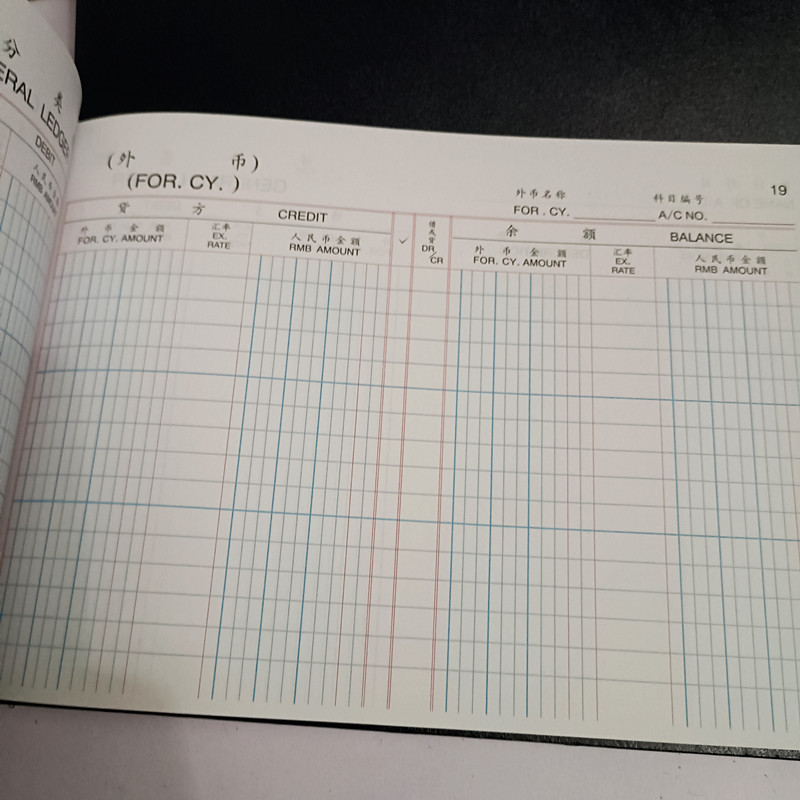 分 类
ERAL LEDGER
DEBIT
RMB AMOUNT
(外 币)
(FOR. CY. )
19
外币名称
FOR . CY.
科目编号
A/C NO.
贷 方 CREDIT
外 币 金 额
FOR. CY. AMOUNT
汇率
EX.
RATE
人民币金额
RMB AMOUNT
✓
借或贷
DR/CR
余 额 BALANCE
外 币 金 额
FOR. CY. AMOUNT
汇率
EX.
RATE
人民币金额
RMB AMOUNT